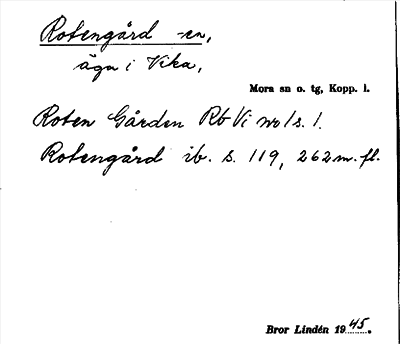 Rotengård -en,
äga i Vika,
Mora sn o. tg, Kopp. l.
Roten Gården Rb Vi no 1 s. 1.
Rotengård ib. s. 119, 262 m. fl.
Bror Lindén 1945.